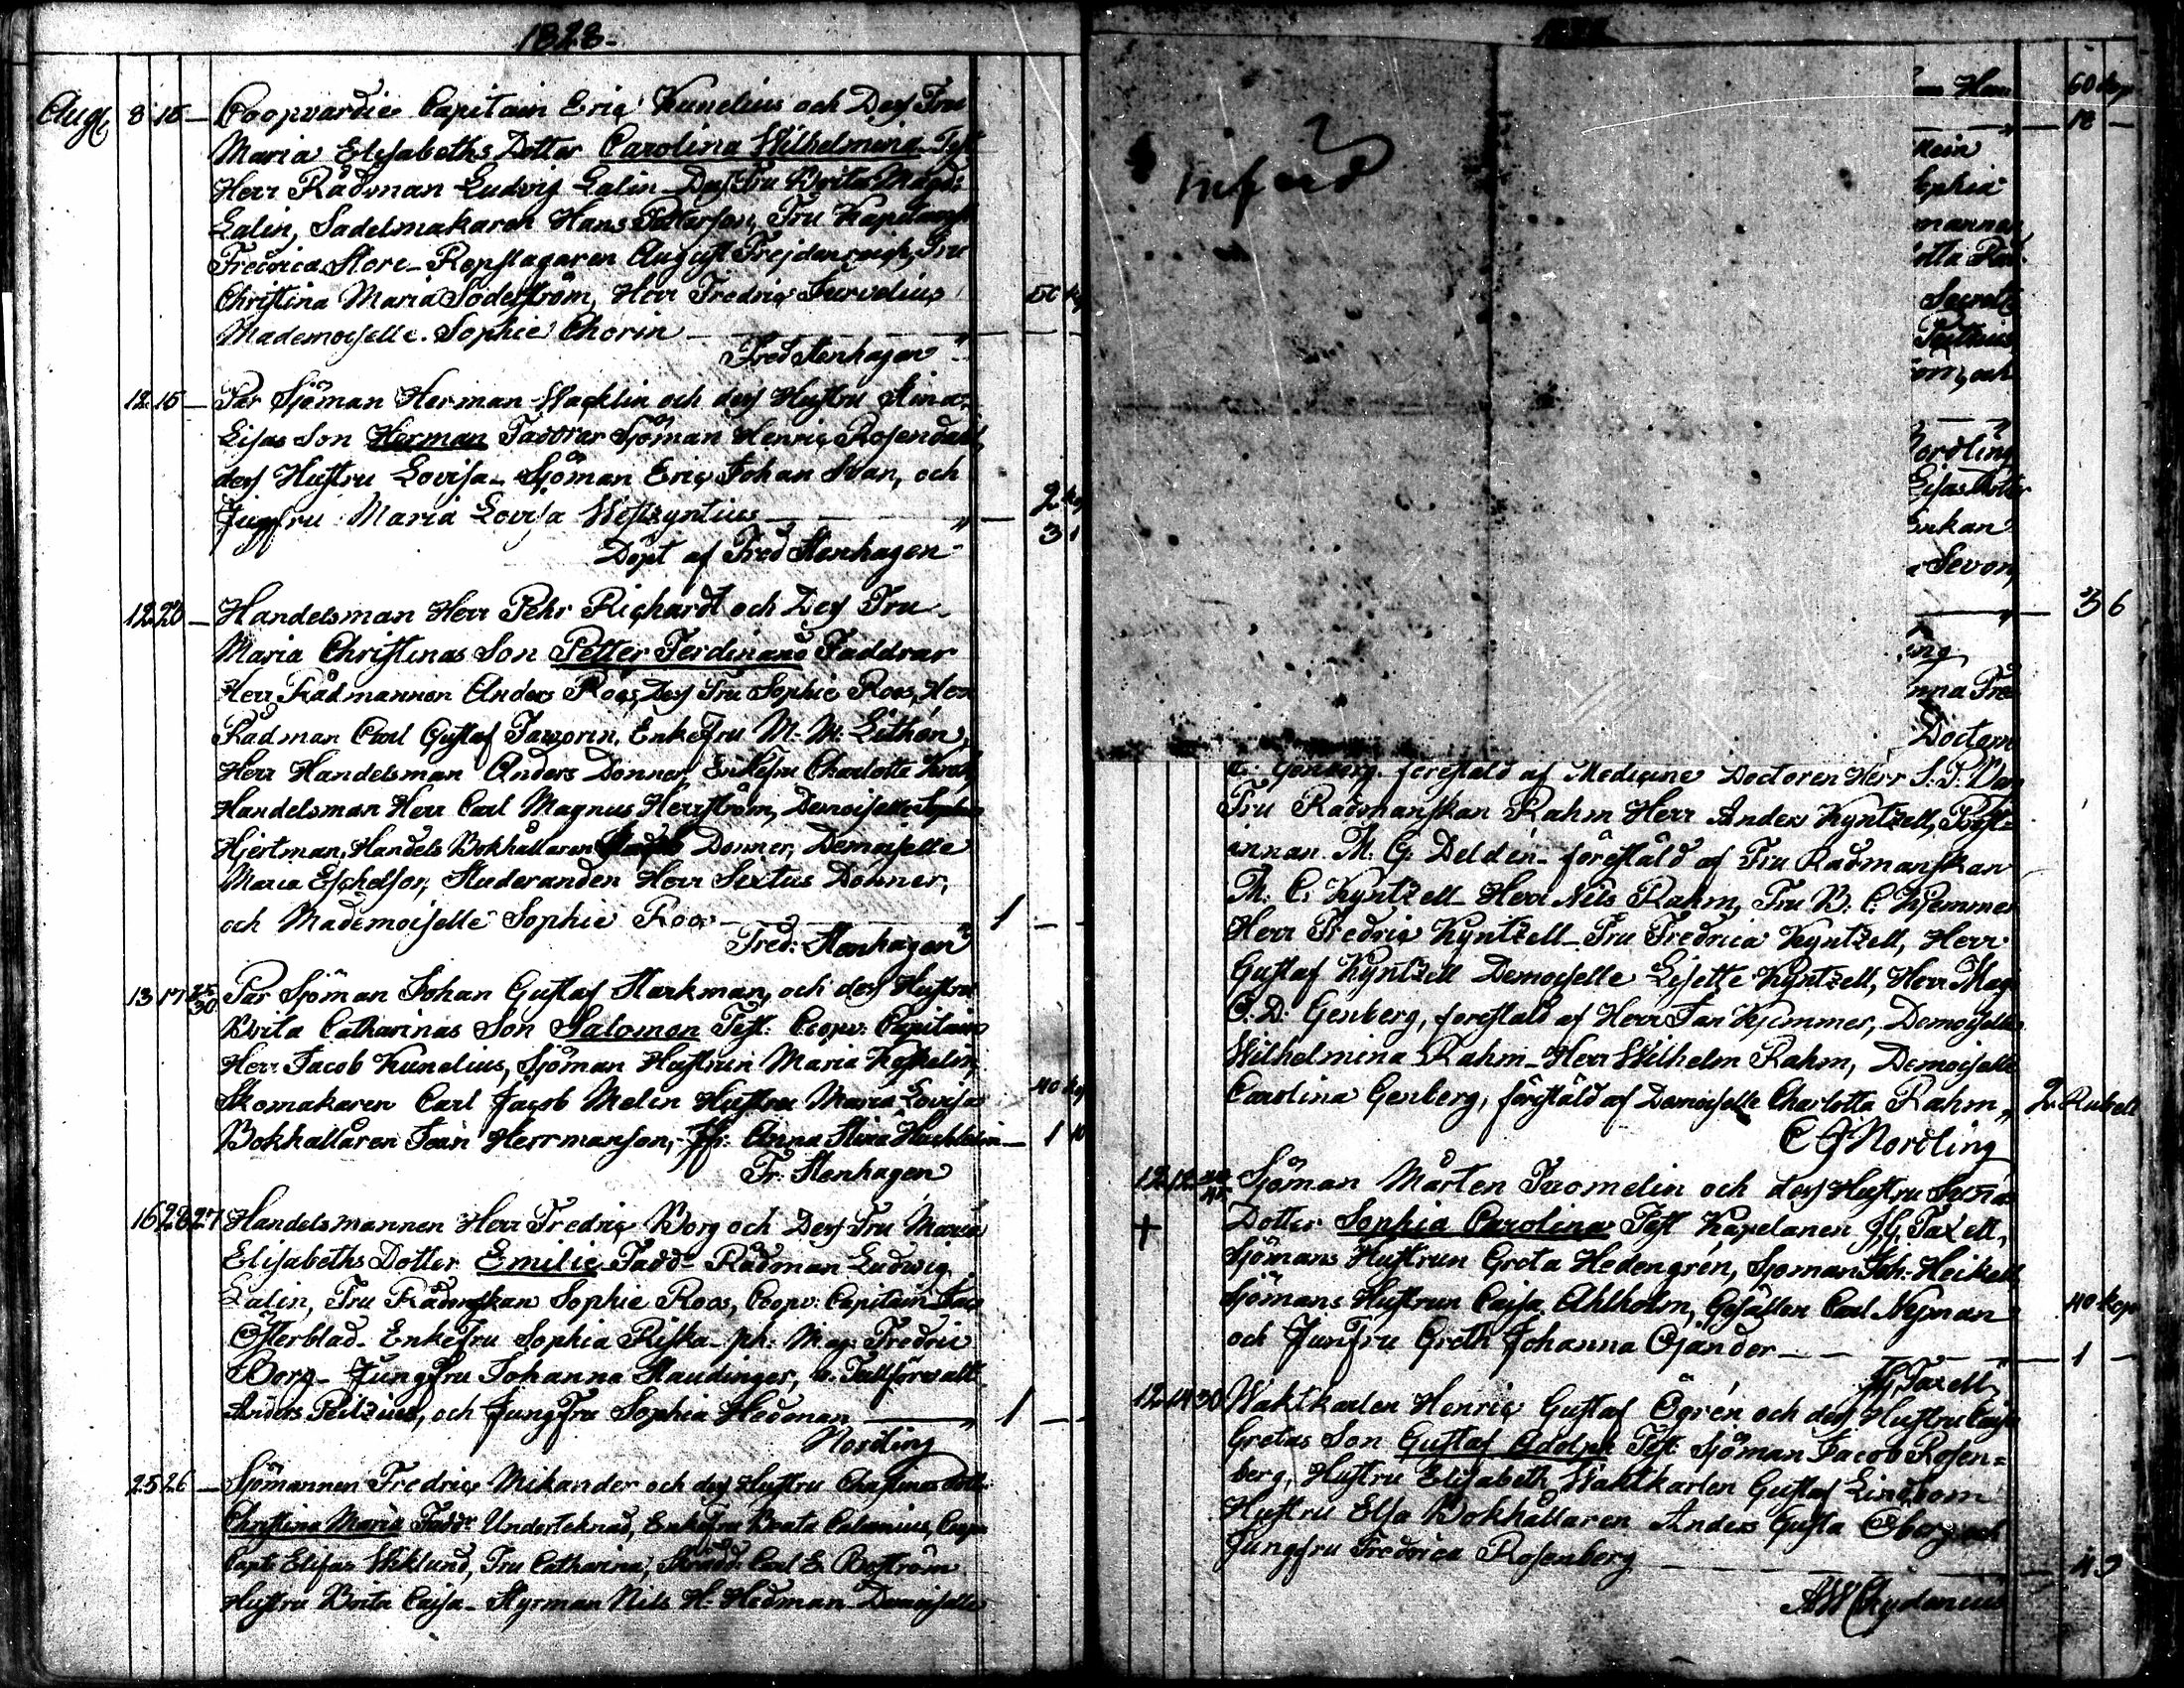 1828-
Aug 8 18 Coopvardie Capitain Eric Kunelius och Dess Fru
Maria Elisabeths Dotter Carolina Wilhelmina Test
Herr Rådman Ludvig Lalin Dess Fru Brita Magd:
Lalin, Sadelmakaren Hans Petterson, Fru
Fredrica Store- Repslagaren August Frejdenreich, Fru
Christina Maria Söderström, Herr Fredric
Mademoiselle Sophie Chorin
Fred Stenhagen
12 15 Par Sjöman Herman Wacklin och dess Hustru Stina
Lisas Son Herman Faddrar Sjöman Henric Rosendahl,
dess Hustru Lovisa- Sjöman Eric Johan Svan, och 2
Jungfru Maria Lovisa 3 1
Döpt af Fred Stenhagen
12 20 Handelsman Herr Pehr Richardt och Dess Fru
Maria Christinas Son Petter Ferdinand Faddrar
Herr Rådmannen Anders Roos, Dess Fru Sophie Roos, Herr
Rådman Carl Gustaf Faworin, Enkefru M. M. Lithén,
Herr Handelsman Anders Donner, Enkefru Charlotte
Handelsman Herr Carl Magnus Herrström, Demoiselle Sophie
Hjertman, Handels Bokhållaren Donner, Demoiselle
Maria Eschelson, Studeranden Herr Sixtus Donner,
och Mademoiselle Sophie Roos 1
Fred: Stenhagen
13 17 Par Sjöman Johan Gustaf Starkman, och dess Hustru
30 Brita Catharinas Son Salomon Test. Coopv: Capitain
Herr Jacob Kunelius, Sjöman Hustrun Maria
Skomakaren Carl Jacob Melin Hustru Maria Lovisa 40
Bokhållaren Joan Hermanson, Jfr: Anna Stina 1
Fr: Stenhagen
16 28 27 Handelsmannen Herr Fredric Borg och Dess Fru Maria
Elisabeths Dotter Emilie Fadd- Rådman Ludwig
Lalin, Fru Rådmskan Sophie Roos, Coopv: Capitain Jac
Österblad- Enkefru Sophia Riska- ph: Mag: Fredric
Borg- Jungfru Johanna Staudinger, v. Tullförvalt
Anders Peitzius, och Jungfru Sophia Hedman 1
Nordling
25 26 Sjömannen Fredric Mikander och dess Hustru Christinas Dotter
Christina Maria Faddr Undertecknad, Enkefru Beata Calamius, Coopv
Capt: Elifas Wiklund, Fru Catharina, Skrädd: Carl E. Boström
Hustru Brita Caisa- Styrman Nils H. Hedman- Demoiselle
införd
60 kop
18
stein
ophia
mannen
otta
Secrete
on, och
Nordling
Lisas Dotter
Enkan
Sevon,
3 6
nna Fre
Doctorn
C. Genberg. förestäld af Medicine Doctoren Herr
Fru Rådmanskan Rahm Herr Anders Kyntzell,
innan M. G. Deldén- förestäld af Fru Rådmanskan
M. C. Kyntzell- Herr Nils Rahm, Fru B. C. Kjemmer
Herr Fredric Kyntzell- Fru Fredrica Kyntzell, Herr
Gustaf Kyntzell Demoiselle Lisette Kyntzell, Herr Mag
O. D. Genberg, förestäld af Herr Jan Kjemmer, Demoiselle
Wilhelmina Rahm- Herr Wilhelm Rahm, Demoiselle
Carolina Genberg, förestäld af Demoiselle Charlotta Rahm 2 Rubell
C G Nordling
12 12 Sjöman Mårten Tuomelin och dess Hustru
+ Dotter Sophia Carolina Test Kapelanen J. G. Taxell,
Sjömans Hustrun Greta Hedengrén, Sjöman Joh: Heikell
Sjömans Hustrun Caisa Ahlholm, Gesällen Carl Nyman 40 kop
och Junfru Greth Johanna Ojander 1
J G Taxell
12 14 30 Waktkarlen Henric Gustaf Ögrén och dess Hustru Caisa
Gretas Son Gustaf Adolph Test Sjöman Jacob Rosen=
berg, Hustru Elisabeth, Waktkarlen Gustaf Lindbom
Hustru Elsa Bokhållaren Anders Gusta Öberg och
Jungfru Fredrica Rosenberg
A W Chydenius